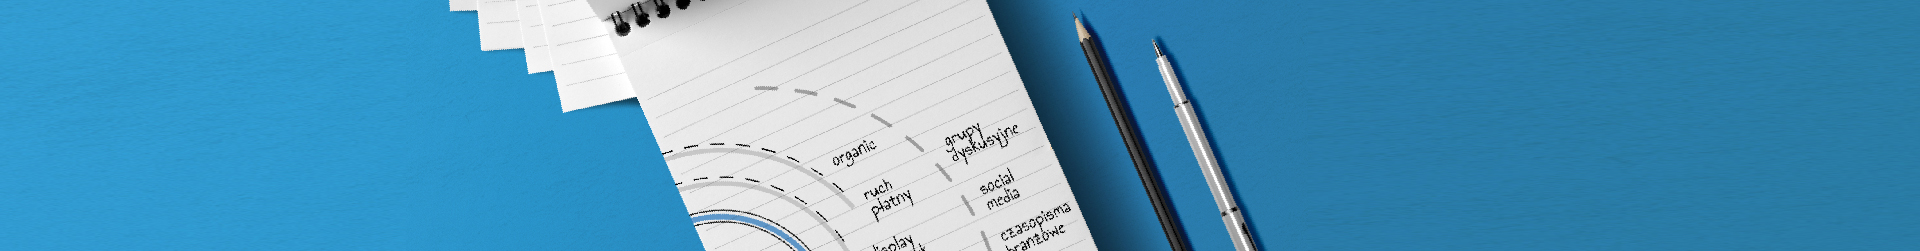 organic
grupy
dyskusyjne
ruch
płatny
social
media
display
czasopisma
branżowe